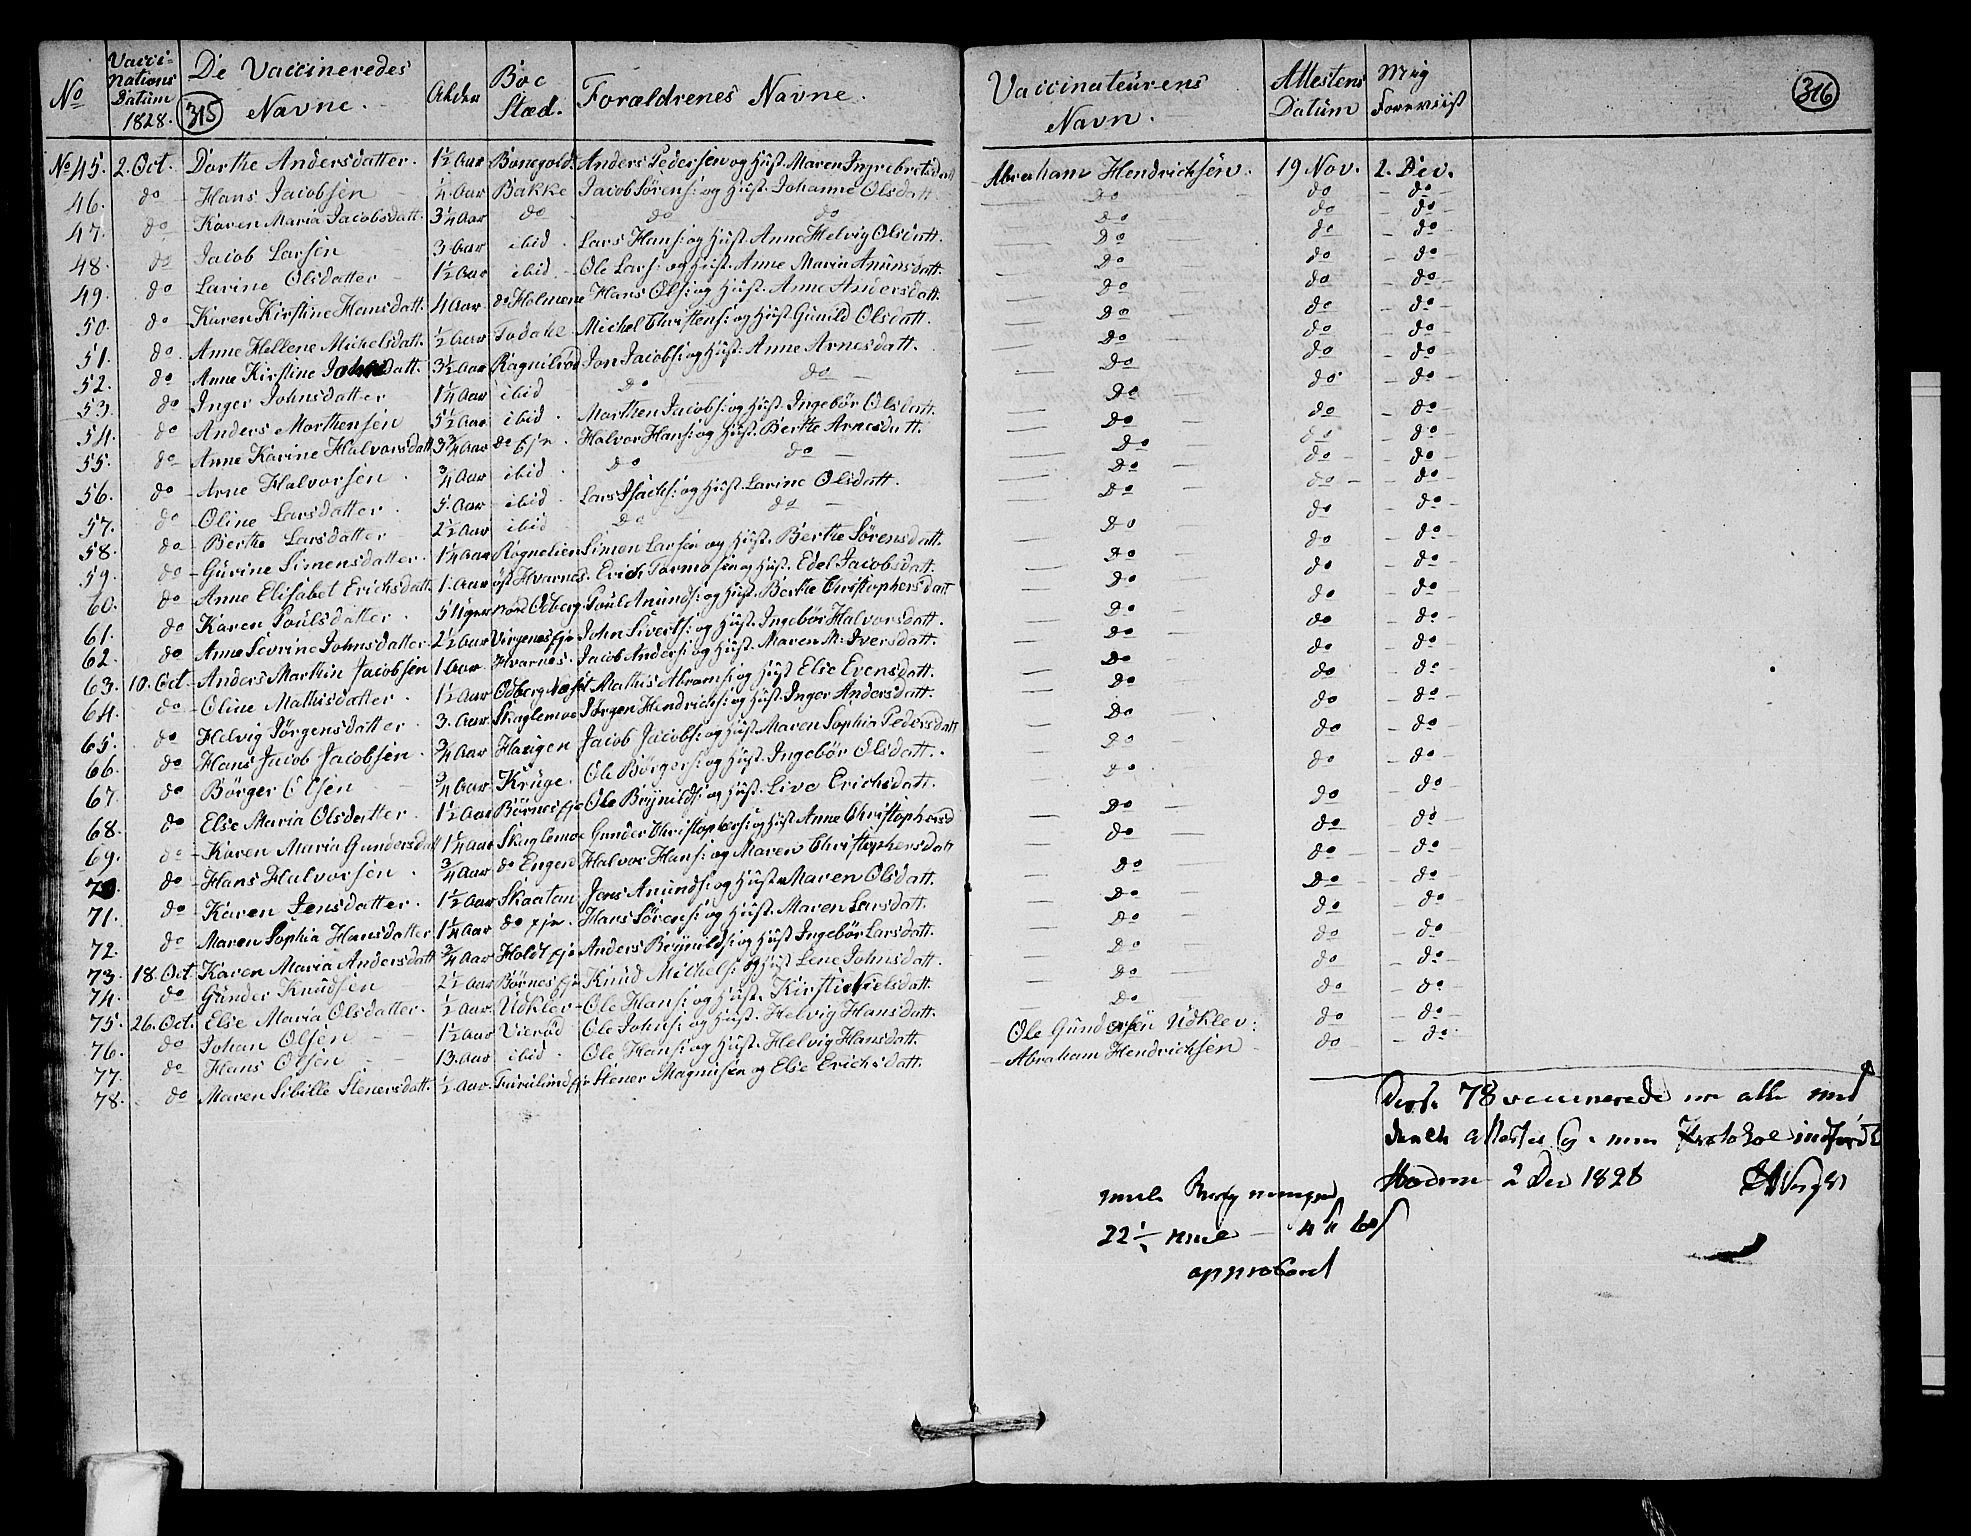 No Vacci-nations Datum 1828. De Vaccineredes Navne. Alder Boe Stæd. Forældrenes Navne. Vaccinateurens Navn. Attestens Datum Mig Foreviist
315 316
No 45. 2. Oct. Dorthe Andersdatter. 1½ Aar Anders Pedersen og Hust. Maren Abraham Hendrichsen. 19 Nov. 2. Dec.
46. do Hans Jacobsen ¼ Aar Bakke Jacob Sørens: og Hust. Johanne Olsdatt. Do do do
47. do Karen Maria Jacobsdatt. 3¼ Aar do do do Do do do
48. do Jacob Larsen 3 Aar ibid. Lars Hans: og Hust. Anne Helvig Olsdatt. Do do do
49. do Larine Olsdatter 1½ Aar ibid. Ole Lars: og Hust. Anne Maria Anunsdatt. Do do do
50. do Karen Kirstine Hansdatt. 4 Aar do Holmene Hans Ols: og Hust. Anne Andersdatt. Do do do
51. do Anne Hellene Michelsdatt. ½ Aar Michel Christens: og Hust. Gunild Olsdatt. Do do do
52. do Anne Kirstine Johnsdatt. 3½ Aar Ragnilrød Jon Jacobs: og Hust. Anne Arnesdatt. Do do do
53. do Inger Johnsdatter 1¼ Aar ibid do do Do do do
54. do Anders Morthensen 5½ Aar ibid. Morthen Jacobs: og Hust. Ingebør Olsdatt. Do do do
55. do Anne Karine Halvorsdatt 3¾ Aar do Eje. Halvor Hans: og Hust. Berthe Arnesdatt. Do do do
56. do Arne Halvorsen. ¾ Aar ibid. do do Do do do
57. do Oline Larsdatter. 5. Aar ibid. Lars Isachs: og Hust. Larine Olsdatt. Do do do
58. do Berthe Larsdatter 2½ Aar ibid do do Do do do
59. do Gurine Simensdatter. 1¼ Aar Rognelien Simon Larsen og Hust. Berthe Sørensdatt. Do do do
60. do Anne Elisabet Erichsdatt. 1. Aar øst Hvarnes. Erich Tormosen og Hust. Edel Jacobsdatt. Do do do
61. do Karen Poulsdatter. 5 Uger nord Odberg. Poul Anunds: og Hust. Berthe Christophersdatt Do do do
62. do Anne Sevrine Johnsdatter 2½ Aar Virgenes eje John Siverts: og Hust. Ingebør Halvorsdatt. Do do do
63. 10. Oct. Anders Marthin Jacobsen 1 Aar Hvarnes. Jacob Anders: og Hust. Maren M: Iversdatt. Do do do
64. do Oline Mathisdatter. 1½ Aar Odberg Næset Mathis Abrams: og Hust Else Evensdatt. Do do do
65. do Helvig Jørgensdatter 3. Aar Skaglemoe Jørgen Hendrichs: og Hust. Inger Andersdatt. Do do do
66. do Hans Jacob Jacobsen. ¾ Aar Haugen Jacob Jacobs: og Hust. Maren Sophia Pedersdatt Do do do
67. do Børger Olsen ¾ Aar Kruge. Ole Børgers: og Hust. Ingebør Olsdatt. Do do do
68. do Else Maria Olsdatter 1½ Aar Børnes eje Ole Brynilds: og Hust. Live Erichsdatt. Do do do
69. do Karen Maria Gundersdatt 1¼ Aar Skaglemoe Gunder Christophers: og Hust Anne Christophersd Do do do
70. do Hans Halvorsen. ¾ Aar do Engen Halvor Hans: og Maren Christophersdatt Do do do
71. do Karen Jensdatter. 1½ Aar Skaatan Jens Anunds: og Hust. Maren Olsdatt. Do do do
72. do Maren Sophia Hansdatter 1¼ Aar do eje. Hans Sørens: og Hust. Maren Larsdatt. Do do do
73. 18. Oct Karen Maria Andersdatt ¾ Aar Holdt eje Anders Brynilds: og Hust Ingebør Larsdatt. Do do do
74. do Gunder Knudsen 2½ Aar Børnes eje Knud Michels: og Hust. Lene Johnsdatt. Do do do
75. 26. Oct. Else Maria Olsdatter. ½ Aar Udklev Ole Hans: og Hust. Kirstie Nielsdatt. Do do do
76. do Johan Olsen 1½ Aar Vierød Ole Johns: og Hust. Helvig Hansdatt. Do do do
77. do Hans Olsen 13. Aar ibid. Ole Hans: og Hust. Helvig Hansdatt. Ole Gundersen Udklev: do do
78. do Maren Sibille Stenersdatt. ½ Aar. eje Stener Magnusen og Else Erichsdatt. Abraham Hendrichsen do do
78 vaccinerede alle med
attester Protokol indført
2 Dec 1828
22½ Mile
approberet